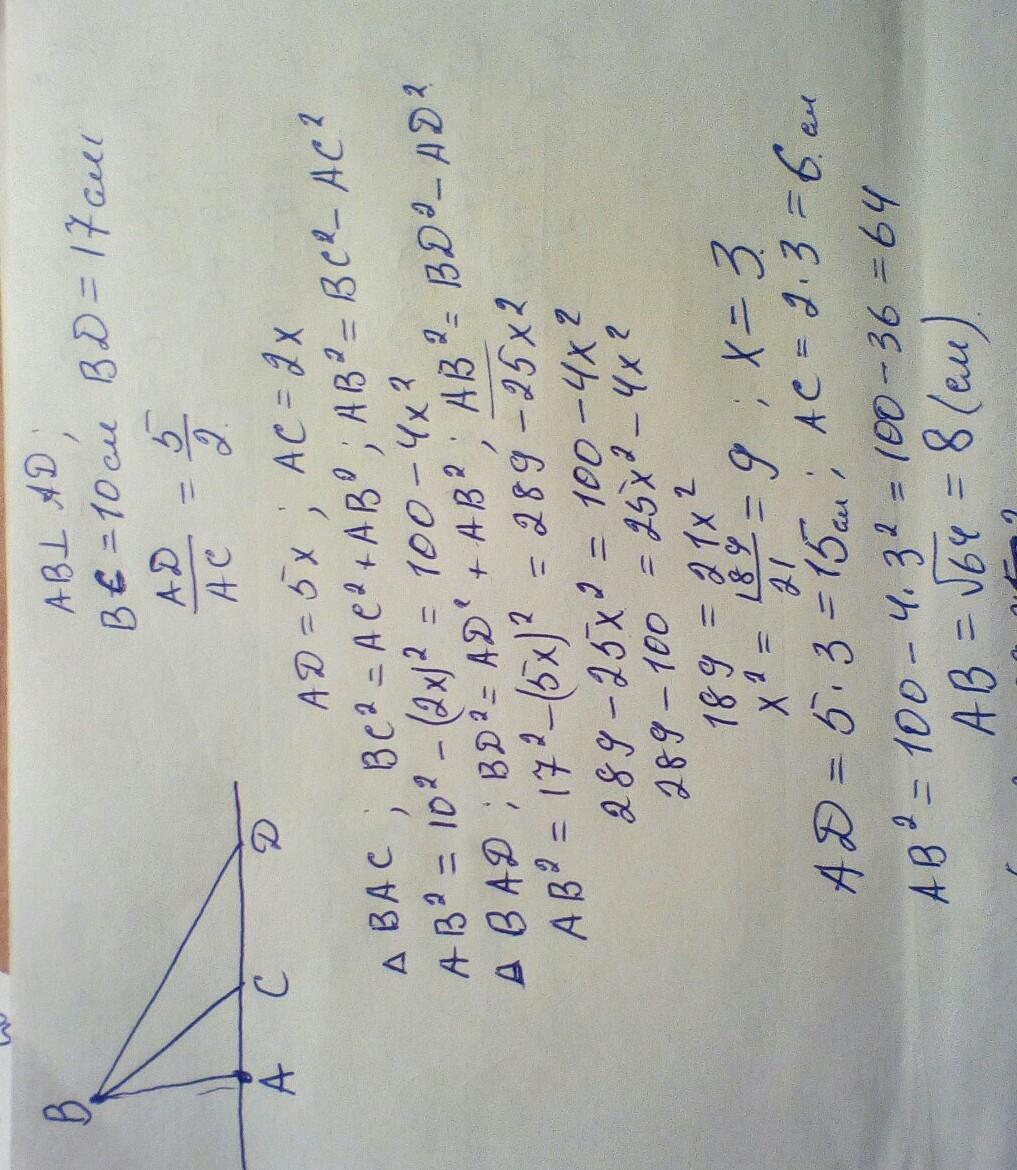 B
A
C
D
AB ⊥ AD;
BC = 10 см BD = 17 см
AD/AC = 5/2
AD = 5x ; AC = 2x
△ BAC ; BC² = AC² + AB² ; AB² = BC² - AC²
AB² = 10² - (2x)² = 100 - 4x²
△ BAD ; BD² = AD² + AB² ; AB² = BD² - AD²
AB² = 17² - (5x)² = 289 - 25x²
289 - 25x² = 100 - 4x²
289 - 100 = 25x² - 4x²
189 = 21x²
x² = 189/21 = 9 ; x = 3
AD = 5·3 = 15 см ; AC = 2·3 = 6 см
AB² = 100 - 4·3² = 100 - 36 = 64
AB = √64 = 8 (см).